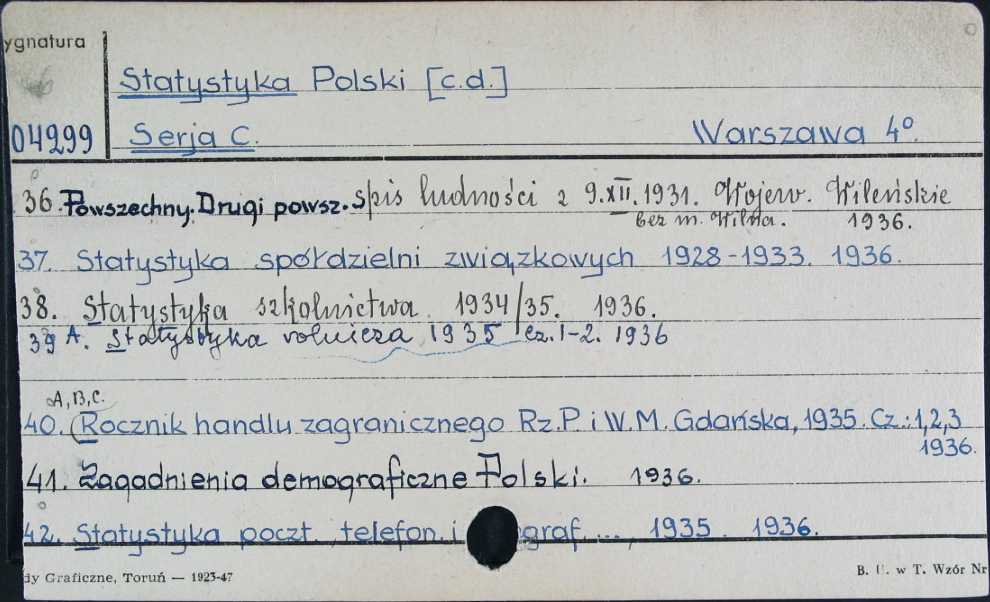 ygnatura
Statystyka Polski [c.d.]
04299 Serja C. Warszawa 4°
36. Powszechny. Drugi powsz. spis ludności z 9.XII.1931. Wojew. Wileńskie
bez m. Wilna. 1936.
37. Statystyka spółdzielni związkowych 1928-1933. 1936.
38. Statystyka szkolnictwa 1934/35. 1936.
39 A. Statystyka rolnicza 1935 cz. 1-2. 1936
A, B, C.
40. (Rocznik handlu zagranicznego Rz.P. i W.M. Gdańska, 1935. Cz.: 1,2,3
1936.
41. Zagadnienia demograficzne Polski. 1936.
42. Statystyka poczt. telefon. i graf..., 1935 1936.
dy Graficzne, Toruń — 1923-47
B. U. w T. Wzór Nr